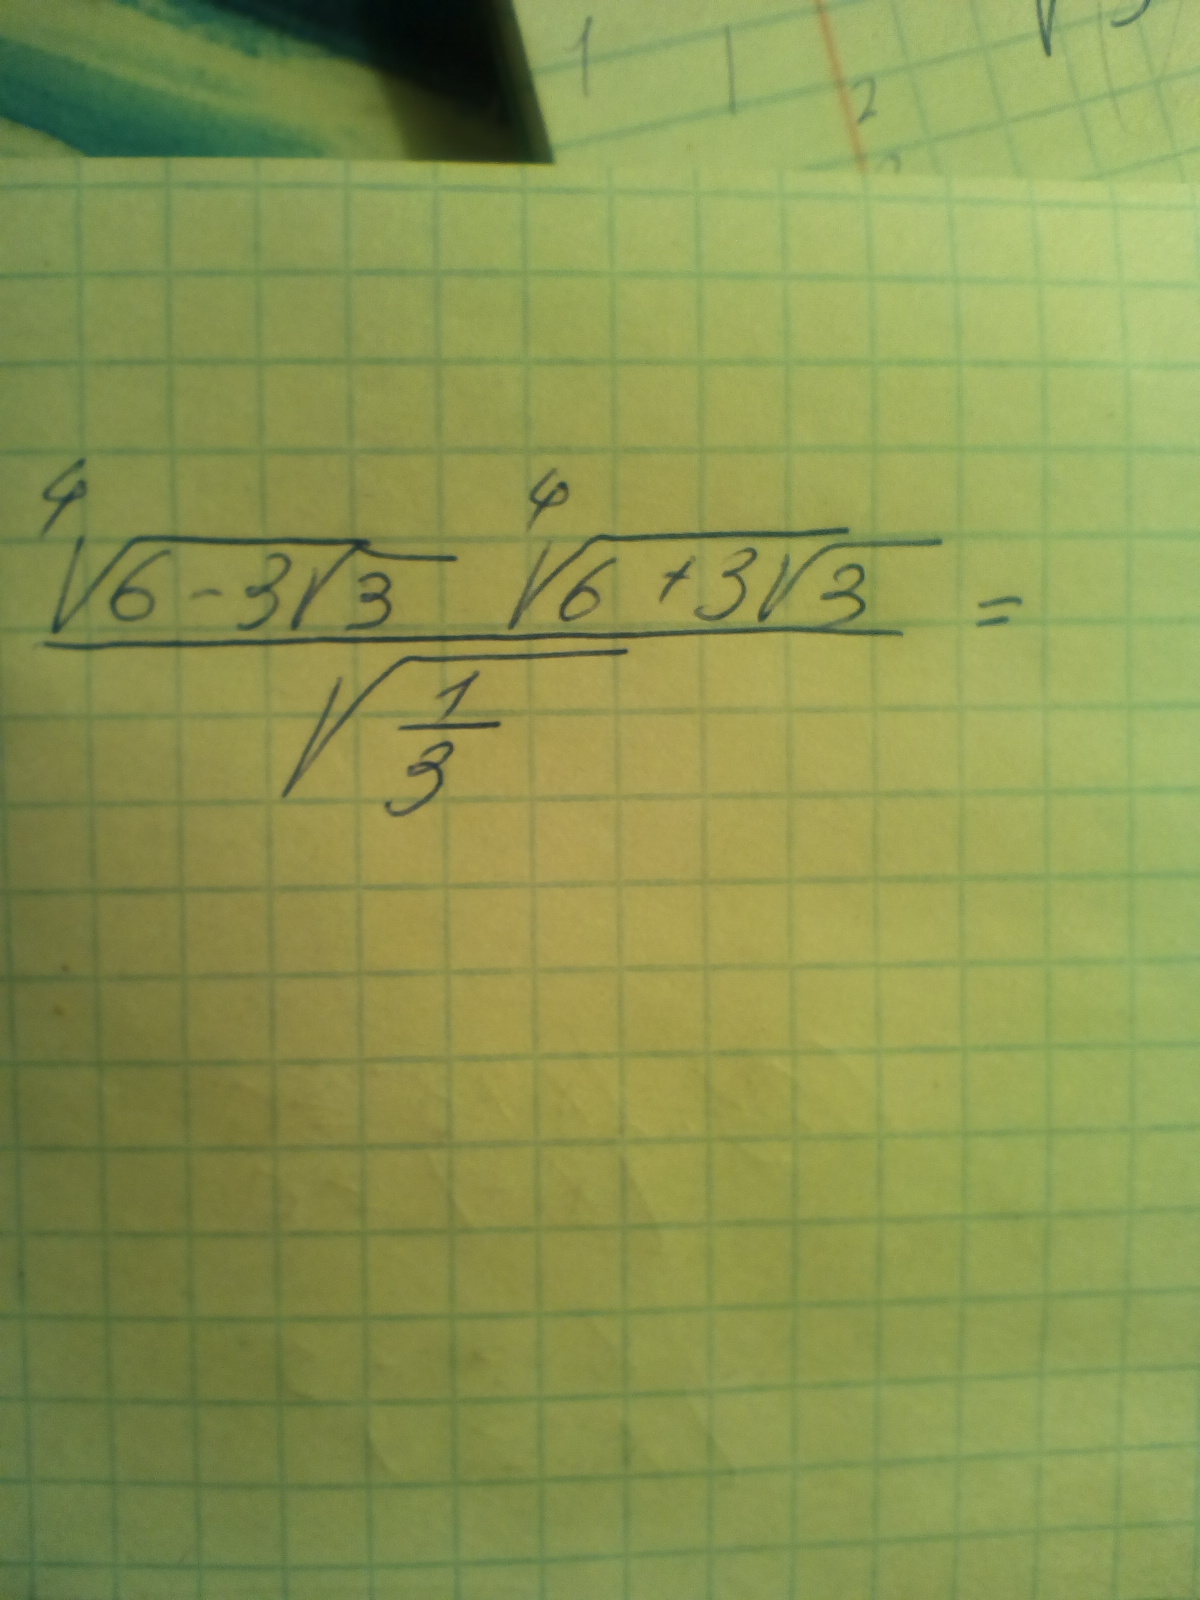 1 1 2
⁴√(6-3√3) ⁴√(6+3√3) =
√(1/3)